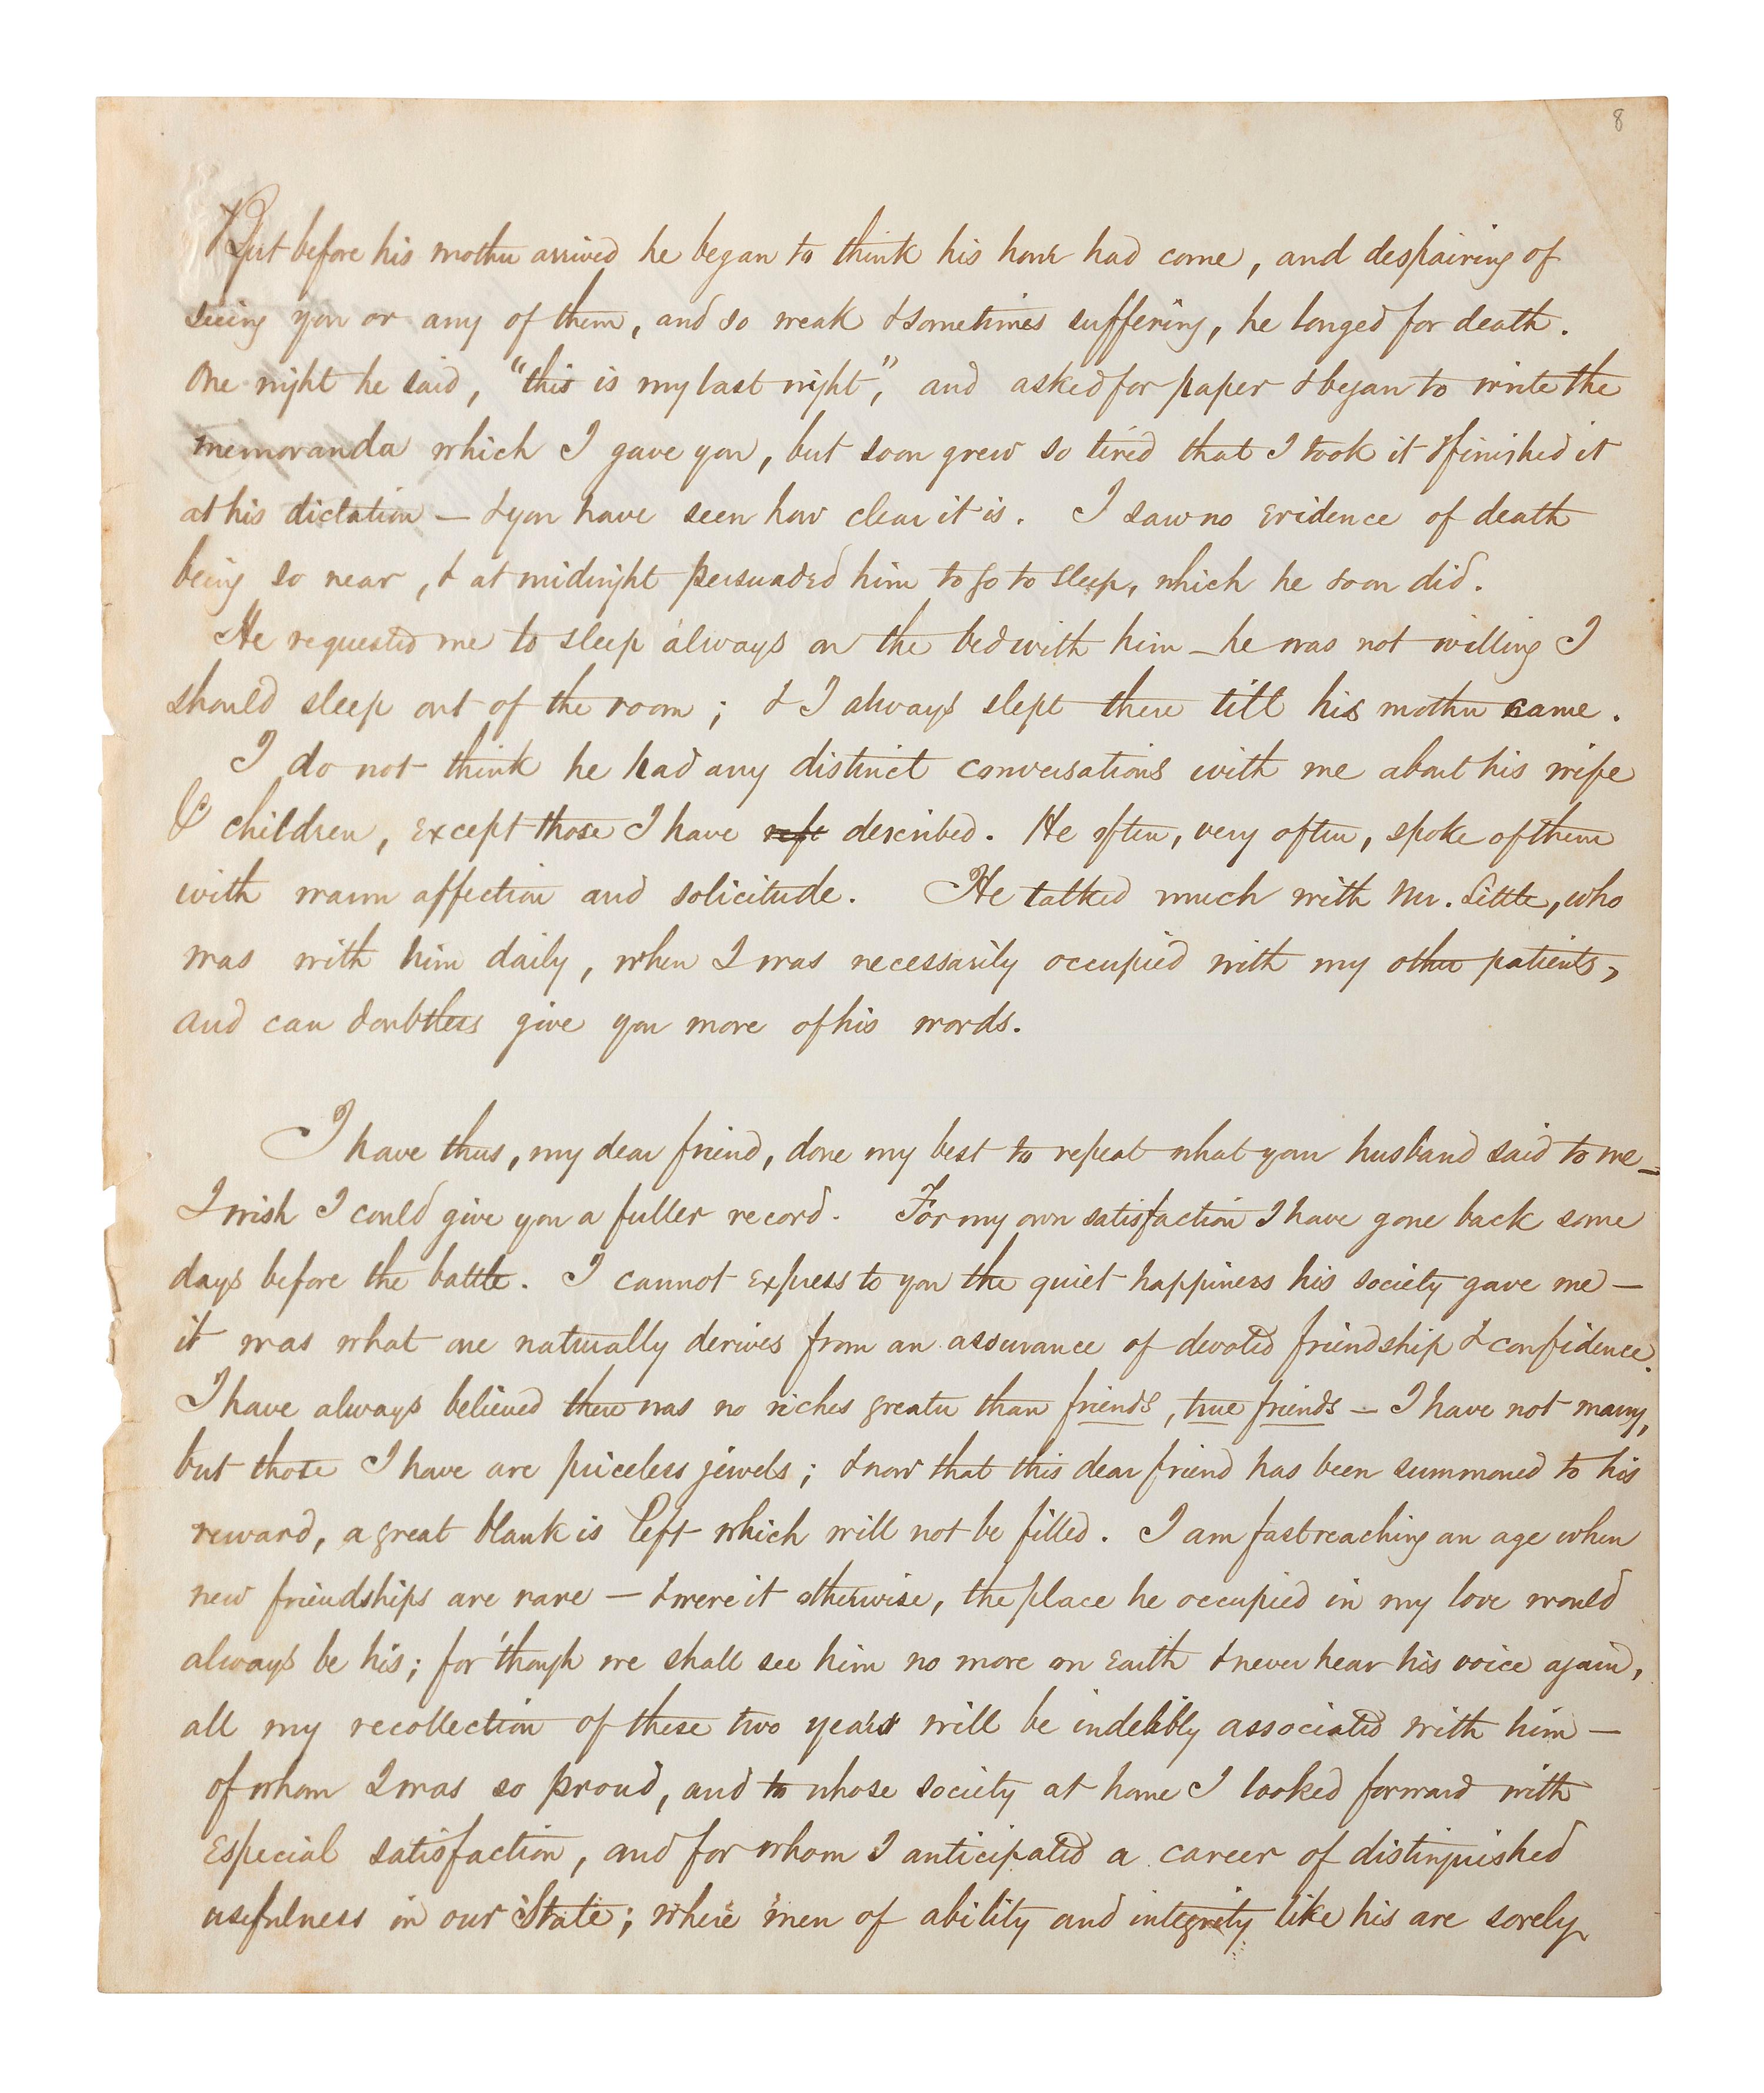 8
But before his mother arrived he began to think his hour had come, and despairing of
seeing you or any of them, and so weak & sometimes suffering, he longed for death.
One night he said, "this is my last night," and asked for paper & began to write the
memoranda which I gave you, but soon grew so tired that I took it & finished it
at his dictation — & you have seen how clear it is. I saw no evidence of death
being so near, & at midnight persuaded him to go to sleep, which he soon did.
He requested me to sleep always on the bed with him — he was not willing I
should sleep out of the room; & I always slept there till his mother came.
I do not think he had any distinct conversations with me about his wife
& children, except those I have described. He often, very often, spoke of them
with warm affection and solicitude. He talked much with Mr. Little, who
was with him daily, when I was necessarily occupied with my other patients,
and can doubtless give you more of his words.
I have thus, my dear friend, done my best to repeat what your husband said to me —
I wish I could give you a fuller record. For my own satisfaction I have gone back some
days before the battle. I cannot express to you the quiet happiness his society gave me —
it was what one naturally derives from an assurance of devoted friendship & confidence.
I have always believed there was no riches greater than friends, true friends — I have not many,
but those I have are priceless jewels; & now that this dear friend has been summoned to his
reward, a great blank is left which will not be filled. I am fast reaching an age when
new friendships are rare — & were it otherwise, the place he occupied in my love would
always be his; for 'though we shall see him no more on Earth & never hear his voice again,
all my recollection of these two years will be indelibly associated with him —
of whom I was so proud, and to whose society at home I looked forward with
especial satisfaction, and for whom I anticipated a career of distinguished
usefulness in our State; where men of ability and integrity like his are sorely